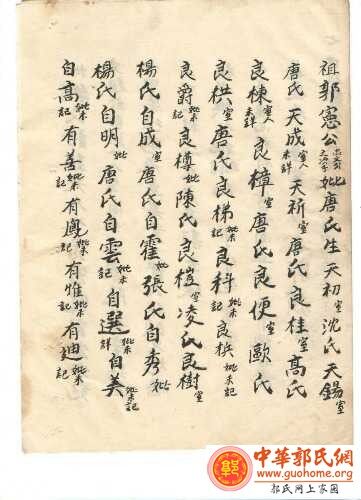 祖郭憲公妣唐氏生天初室沈氏天錫室
唐氏天成室人未詳天祈室人唐氏良桂室高氏
良棟室未詳良樟室唐氏良便室歐氏
良栱室唐氏良梯妣未記良科妣未記良梹妣未記
良爵妣未記良樽妣陳氏良檀室凌氏良樹室
楊氏自成室唐氏自霍妣張氏自秀妣
楊氏自明妣唐氏自雲妣未記自選妣未詳自美妣未記
自高妣未記有善妣未記有鳳妣未記有惟妣未記有迪妣未記
中華郭氏網
www.guohome.org
郭氏网上家园